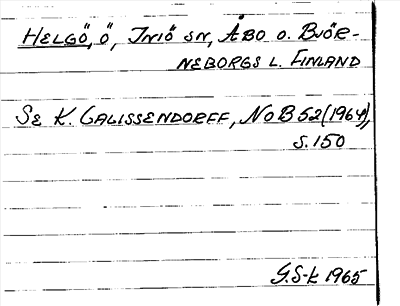 HELGÖ, Ö, INIÖ SN, ÅBO O. BJÖR-
NEBORGS L. FINLAND
SE K. CALISSENDORFF, NOB 52 (1964),
S. 150
G.S-k 1965